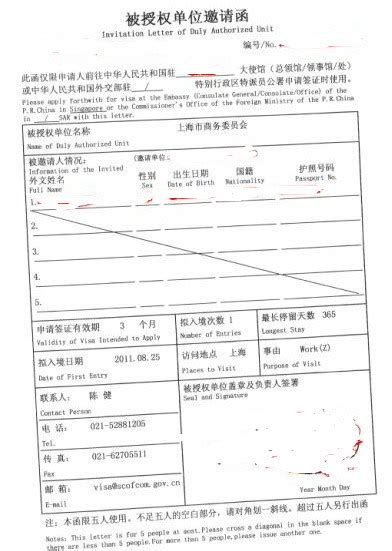 被授权单位邀请函
Invitation Letter of Duly Authorized Unit
编号/No.
此函仅限申请人前往中华人民共和国驻 大使馆(总领馆/领事馆/处)
或中华人民共和国外交部驻 / 特别行政区特派员公署申请签证时使用。
Please apply forthwith for visa at the Embassy (Consulate General/Consulate/Office) of the
P.R.China in Singapore or the Commissioner's Office of the Foreign Ministry of the P.R.China
in / SAR with this letter.
被授权单位名称 上海市商务委员会
Name of Duly Authorized Unit
被邀请人情况: (邀请单位:
Information of the Invited
外文姓名 性别 出生日期 国籍 护照号码
Full Name Sex Date of Birth Nationality Passport No.
1.
2.
3.
4.
5.
申请签证有效期 3 个月 拟入境次数 1 最长停留天数 365
Validity of Visa Intended to Apply Number of Entries Longest Stay
拟入境日期 2011.08.25 访问地点 上海 事由 Work(Z)
Date of First Entry Places to Visit Purpose of Visit
联系人: 陈 健 被授权单位盖章及负责人签署
Contact Person Seal and Signature
电 话: 021-52881205
Tel.
传 真: 021-62705511
Fax
邮 箱: visa@scofcom.gov.cn
E-mail Year Month Day
注:本函限五人使用。不足五人的空白部分,请对角划一斜线。超过五人另行出函
Notes: This letter is for 5 people at most.Please cross a diagonal in the blank space if
there are less than 5 people.For more than 5 people,please issue another one.